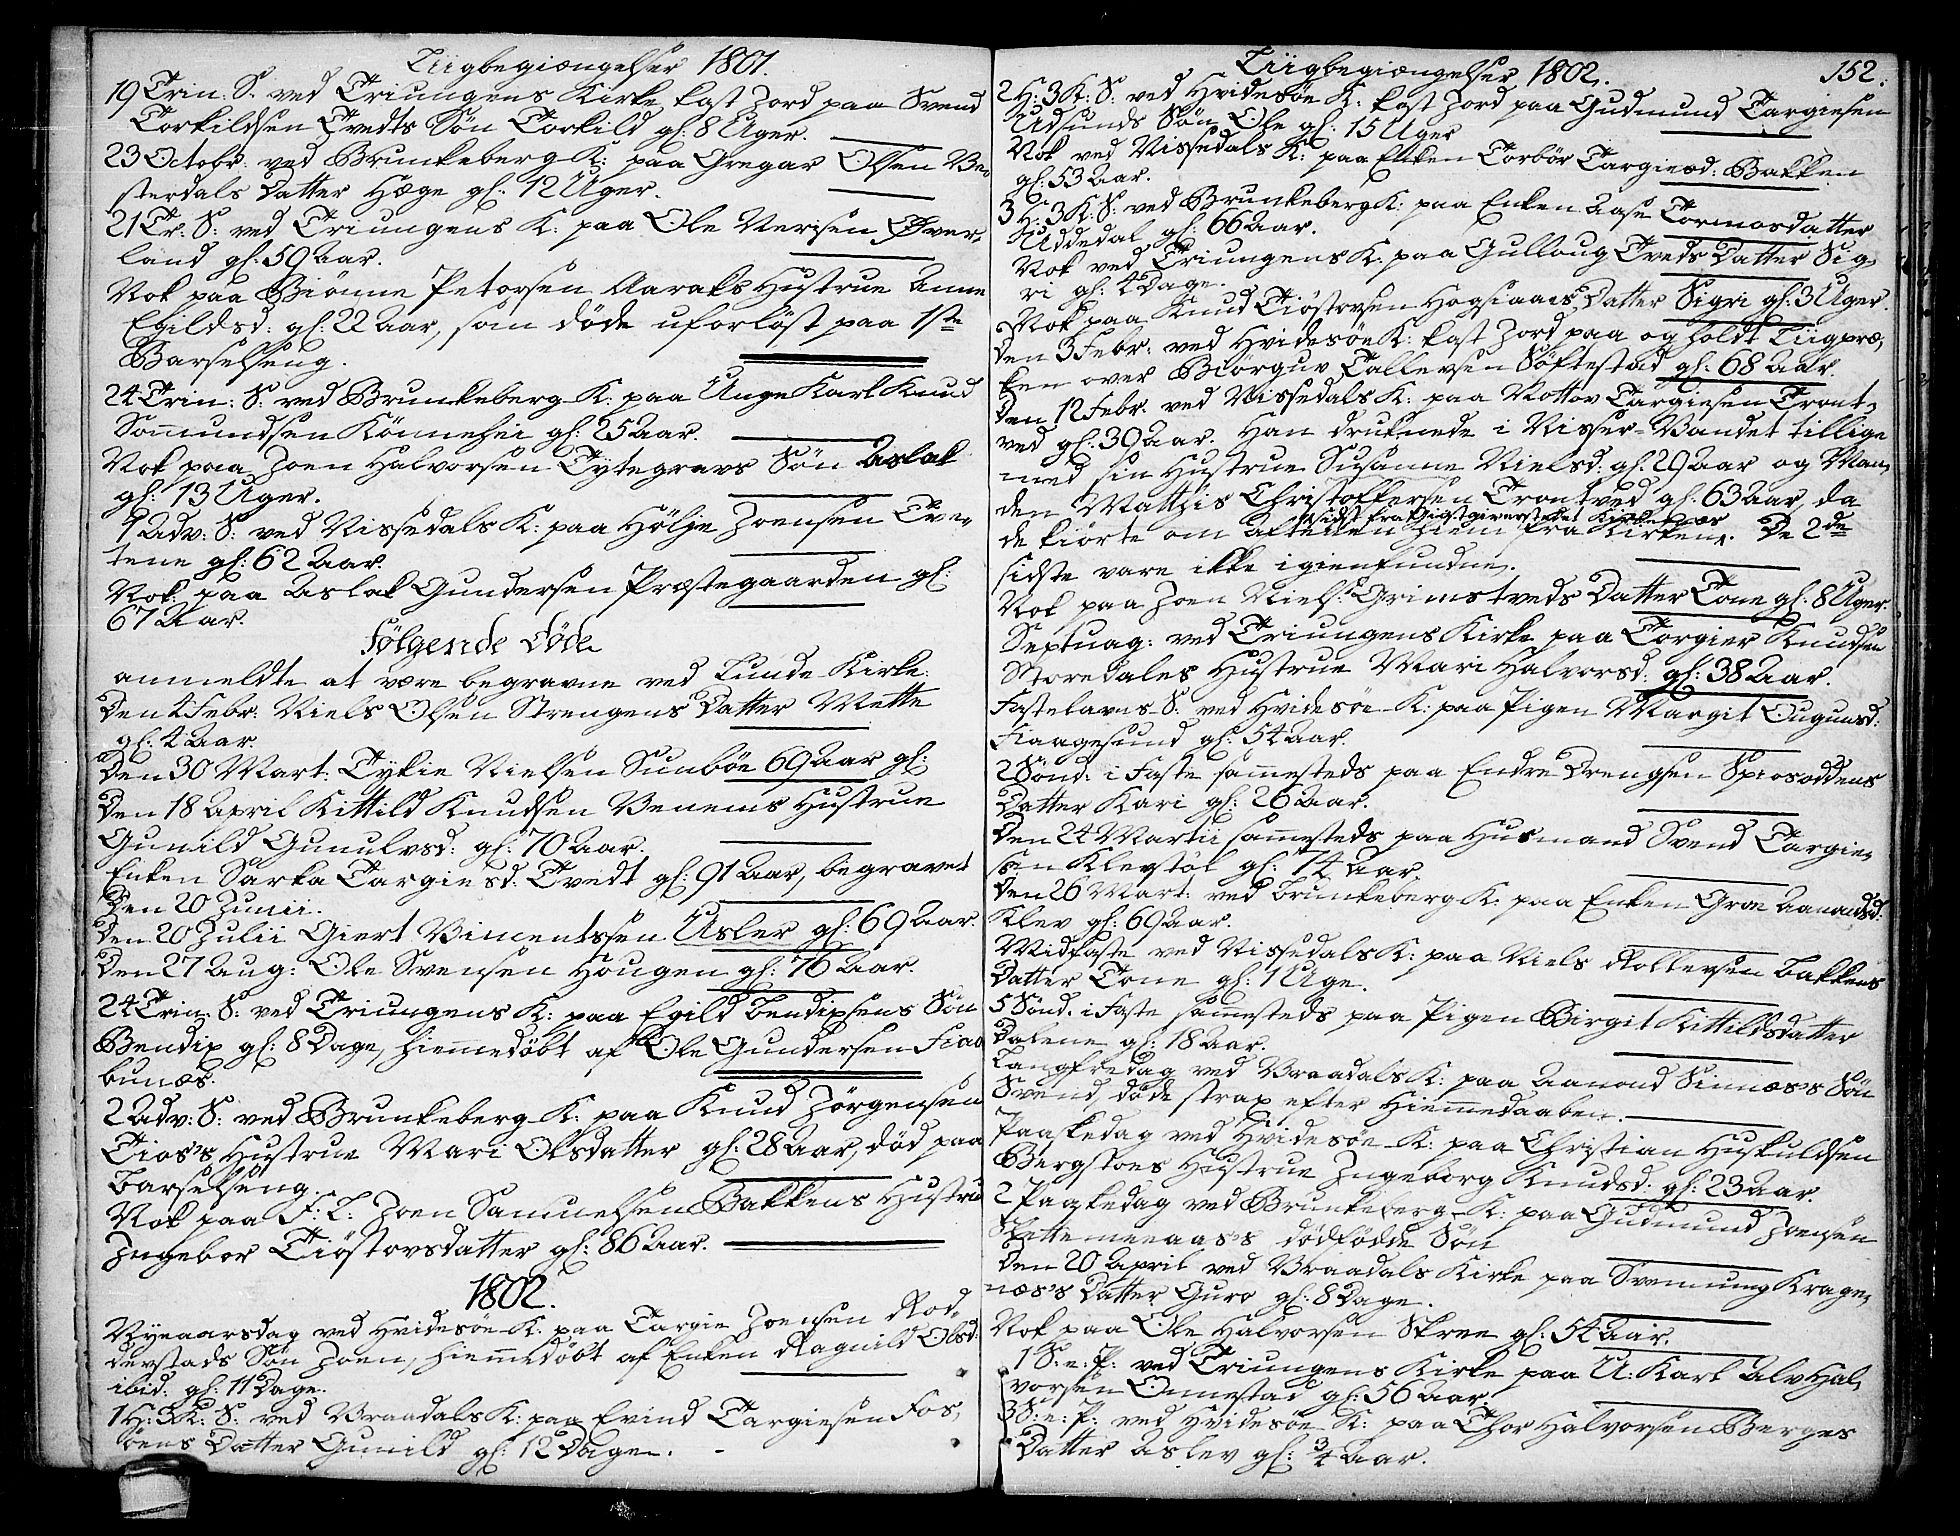 Liigbegiængelser 1801.
19 Trin: S. ved Triungens Kirke kast Jord paa Svend
Torkildsen Tvedts Søn Torkild gl: 8 Uger.
23 Octobr: ved Brunkeberg K: paa Gregar Olsen Ve-
sterdals Datter Hæge gl. 12 Uger.
21 Tr. S: ved Triungens K: paa Ole Nerisen Øver-
land gl. 50 Aar.
Nok paa Biønne Petersen Aaraks Hustrue Anne
Egildsd: gl: 22 Aar, som døde uforløst paa 1ste
Barselseng.
24 Trin: S: ved Brunkeberg K: paa Unge Karl Knud
Somundsen Kønnehei gl: 25 Aar.
Nok paa Joen Halvorsen Tytegravs Søn Aslak
gl: 13 Uger.
1 Adv: S: ved Nissedals K: paa Hølje Joensen Tve-
tene gl: 62 Aar.
Nok: paa Aslak Gundersen Præstegaarden gl:
67 Aar.
Følgende døde
anmeldte at være begravne ved Lunde Kirke:
Den 2 Febr: Niels Olsen Strengens Datter Mette
gl: 2 Aar.
Den 30 Mart: Tykie Nielsen Sunbøe 69 Aar gl:
Den 18 April Kittild Knudsen Venems Hustrue
Gunild Gunulvsd: gl: 70 Aar.
Enken Sarka Targiesd: Tvedt gl: 91 Aar, begravet
Den 20 Junii.
Den 20 Julii Giert Vincentssen Usler gl: 69 Aar.
Den 27 Aug: Ole Svensen Hougen gl: 76 Aar.
24 Trin: S: ved Triungens K: paa Egild Bendixsens Søn
Bendix gl: 8 Dage, hiemmedøbt af Ole Gundersen Fiaa-
bunæs.
2 Adv: S: ved Brunkeberg K: paa Knud Jørgensen
Tios's Hustrue Mari Olsdatter gl: 28 Aar, død paa
Barselseng.
Nok paa F: L: Joen Samuelsen Bakkens Hustru
Ingebor Tiøstovsdatter gl: 86 Aar.
1802.
Nyeaarsdag ved Hvidesøe K: paa Targie Joensen Rod-
devstads Søn Joen, hiemmedøbt af Enken Ragnild Olsd:
ibid: gl: 11 Dage.
1 H: 3 K: S: ved Vraadals K: paa Evind Targiesen Fos-
søens Datter Gunild gl: 12 Dage.
Liigbegiængelser 1802. 152.
2 H: 3 K: S: ved Hvidesøe K: kast Jord paa Gudmund Targiesen
Udsunds Søn Ole gl: 15 Uger
Nok ved Nissedals K: paa Enken Torbør Targiesd: Bakken
gl: 53 Aar.
3 H: 3 K: S: ved Brunkeberg K: paa Enken Aase Tormosdatter
Uddedal gl: 66 Aar.
Nok ved Triungens K: paa Gulloug Tveds Datter Sig-
ri gl: 2 Dage.
Nok paa Knud Tiøstovsen Hogsiaaes Datter Sigri gl: 3 Uger.
Den 3 Febr: ved Hvidesøe K: kast Jord paa og holdt Liigpræ-
ken over Biørguv Tallevsen Søftestad gl: 68 Aar.
Den 12 Febr. ved Nissedals K: paa Nottov Targiesen Tront-
ved gl: 30 Aar. Han druknede i Nisser-Vandet tillige
med sin Hustrue Susanne Nielsd: gl: 29 Aar og Man-
den Matthis Christoffersen Trontved gl: 63 Aar, da
sidst fra Giestgiverstedet Kirkenæs
de kiørte om Aftenen hiem fra Kirken. De 2de
sidste vare ikke igienfundne.
Nok paa Joen Niels: Grimstveds Datter Tone gl: 8 Uger.
Septuag: ved Triungens Kirke paa Torgier Knudsen
Storedales Hustrue Mari Halvorsd: gl: 38 Aar.
Fastelavns S: ved Hvidesøe K: paa Pigen Margit Ougunsd:
Fiaagesund gl: 54 Aar.
2 Sønd: i Faste sammesteds paa Endre Drengsen Spiosoddens
Datter Kari gl: 26 Aar.
Den 24 Martii sammesteds paa Husmand Svend Targie-
sen Klevstøl gl: 74 Aar.
Den 26 Mart: ved Brunkeberg K: paa Enken Groe Aanondsd:
Klev gl: 69 Aar.
Midfaste ved Nissedals K: paa Niels Rollevsen Bakkens
Datter Tone gl: 1 Uge.
5 Sønd. i Faste sammesteds paa Pigen Birgit Kittildsdatter
Dalene gl: 18 Aar.
Langfredag ved Vraadals K: paa Aanond Sinnæs's Søn
Svend, døde strax efter Hiemmedaaben.
Paaskedag ved Hvidesøe K: paa Christian Huskuldsen
Bergstoes Hustrue Ingeborg Knudsd: gl: 23 Aar.
2 Paaskedag ved Brunkeberg K: paa Gudmund Joensen
Slettemeaas's dødfødde Søn
Den 20 April ved Vraadals Kirke paa Svenung Krage-
næs's Datter Guro gl: 8 Dage.
Nok paa Ole Halvorsen Skree gl: 54 Aar.
1 S: e: P: ved Triungens Kirke paa U: Karl Alv Hal-
vorsen Onnestad gl: 56 Aar.
3 S: e: P: ved Hvidesøe K: paa Thor Halvorsen Berges
Datter Aslev gl: 3/4 Aar.